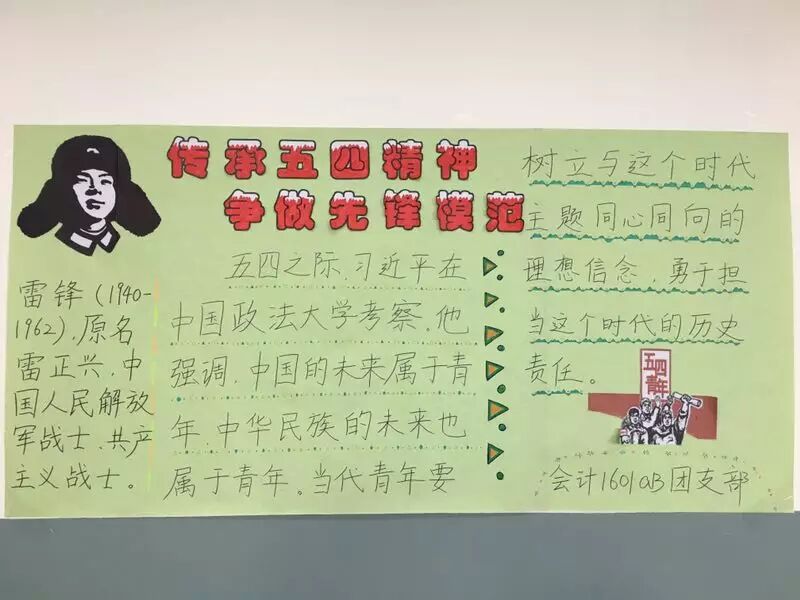 传承五四精神
争做先锋模范
雷锋(1940-
1962),原名
雷正兴,中
国人民解放
军战士、共产
主义战士。
五四之际,习近平在
中国政法大学考察,他
强调,中国的未来属于青
年,中华民族的未来也
属于青年。当代青年要
树立与这个时代
主题同心同向的
理想信念,勇于担
当这个时代的历史
责任。
五四
青年
会计1601aB团支部